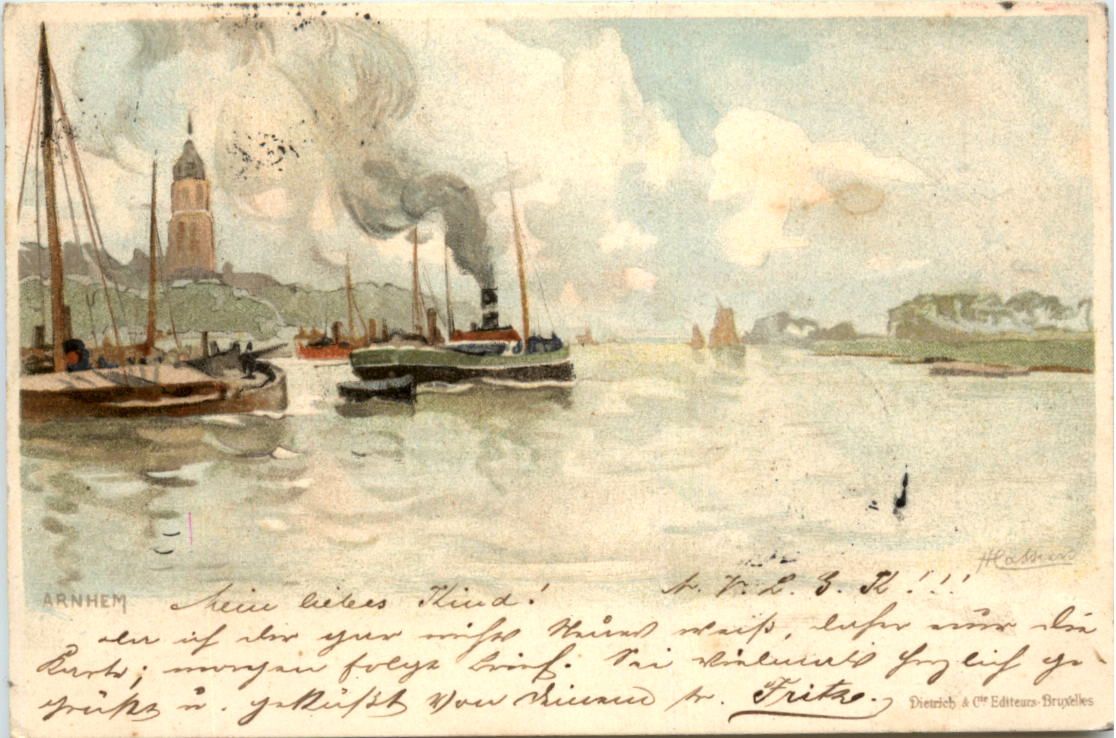 H. Cassiers
ARNHEM
Mein liebes Kind! N. V. L. Z. K!!!
da ich dir gar nichts Neues weiß, daher nur die
Karte; morgen folgt Brief. Sei vielmals herzlich ge-
grüßt u. geküßt von Deinem tr. Fritz.
Dietrich & Cie Editeurs-Bruxelles